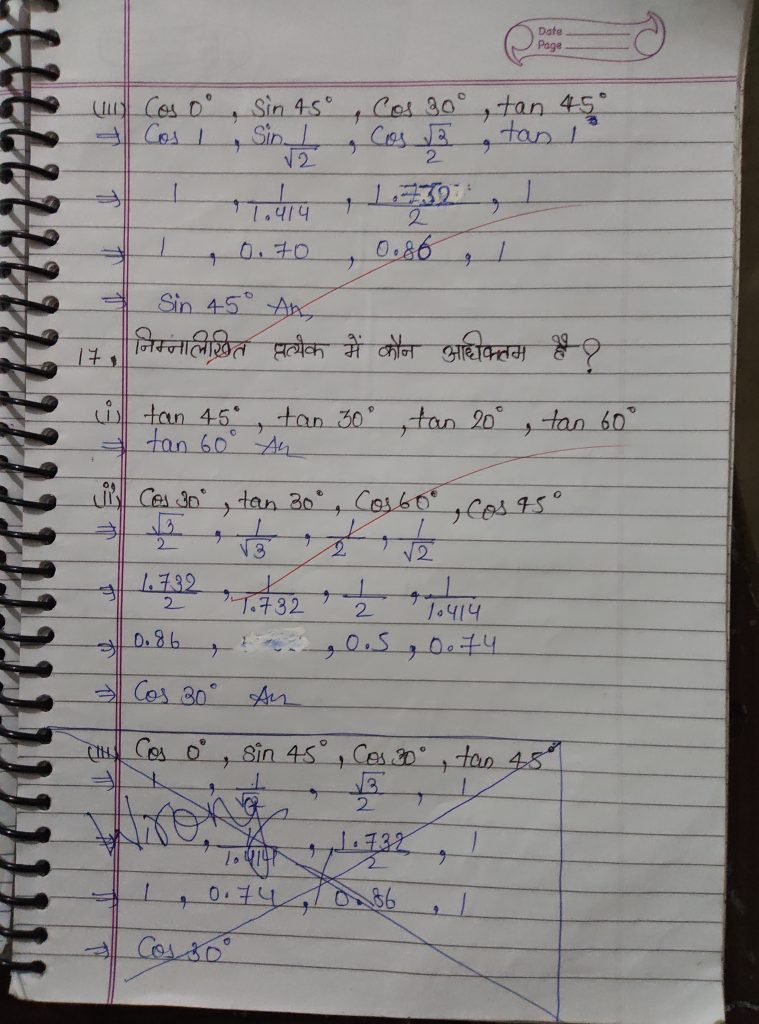 Date
Page
(III) Cos 0° , Sin 45° , Cos 30° , tan 45°
⇒ Cos 1 , Sin 1/√2 , Cos √3/2 , tan 1
⇒ 1 , 1/1.414 , 1.732/2 , 1
⇒ 1 , 0.70 , 0.86 , 1
⇒ Sin 45° An,
17. निम्नलिखित प्रत्येक में कौन अधिकतम है ?
(i) tan 45° , tan 30° , tan 20° , tan 60°
⇒ tan 60° An
(ii) Cos 30° , tan 30° , Cos 60° , Cos 45°
⇒ √3/2 , 1/√3 , 1/2 , 1/√2
⇒ 1.732/2 , 1/1.732 , 1/2 , 1/1.414
⇒ 0.86 , , 0.5 , 0.74
⇒ Cos 30° An
(III) Cos 0° , sin 45° , Cos 30° , tan 45°
⇒ 1 , 1/√2 , √3/2 , 1
Wrong
⇒ , 1/1.414 , 1.732/2 , 1
⇒ 1 , 0.74 , 0.86 , 1
⇒ Cos 30°